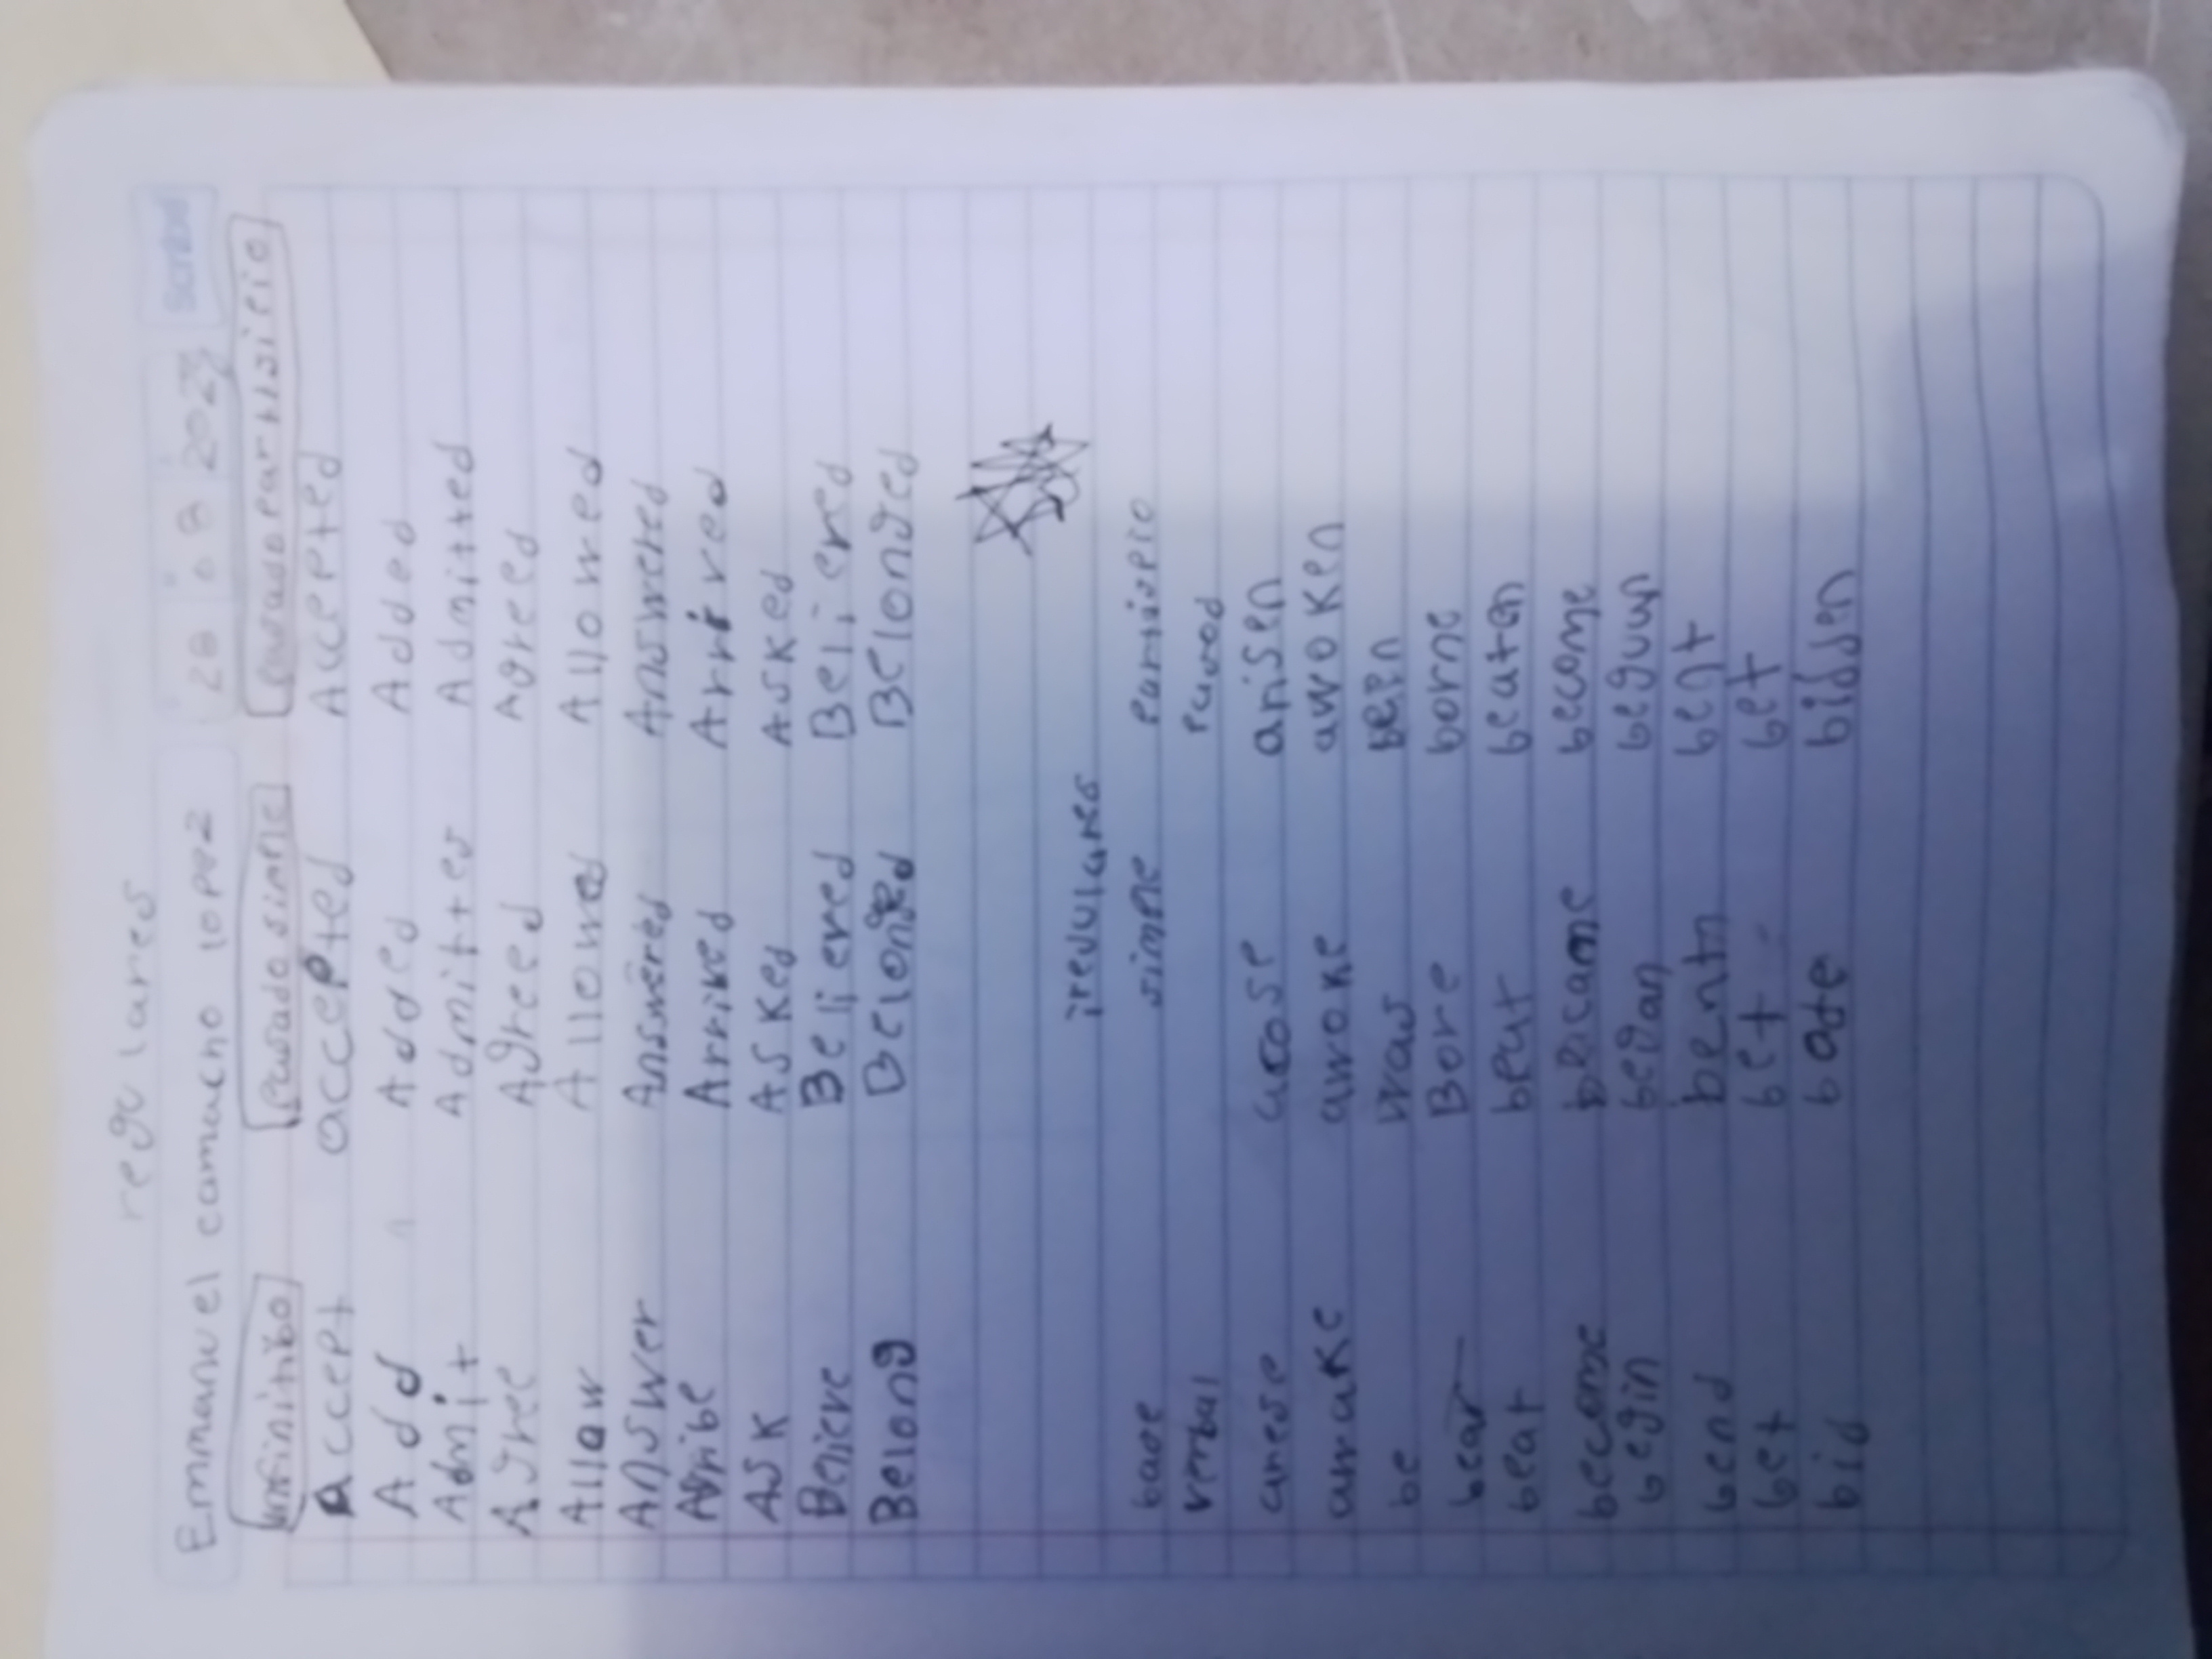 regulares
Emmanuel camacho lopez 28 08 2023 Scribe
infinitibo pasado simple
Accept accepted Accepted
Add Added Added
Admit Admitted
Agree Agreed Agreed
Allow Allowed Allowed
Answer Answered Answered
Arrived Arrived
Ask Asked Asked
Believe Belived
Belong Belonged Belonged
iregulares
base simple
verbal
arisen
awake awoke awoken
be was been
bear Bore borne
beat beaten
become became become
begin began begun
bend bent
bet bet bet
bid bade bidden